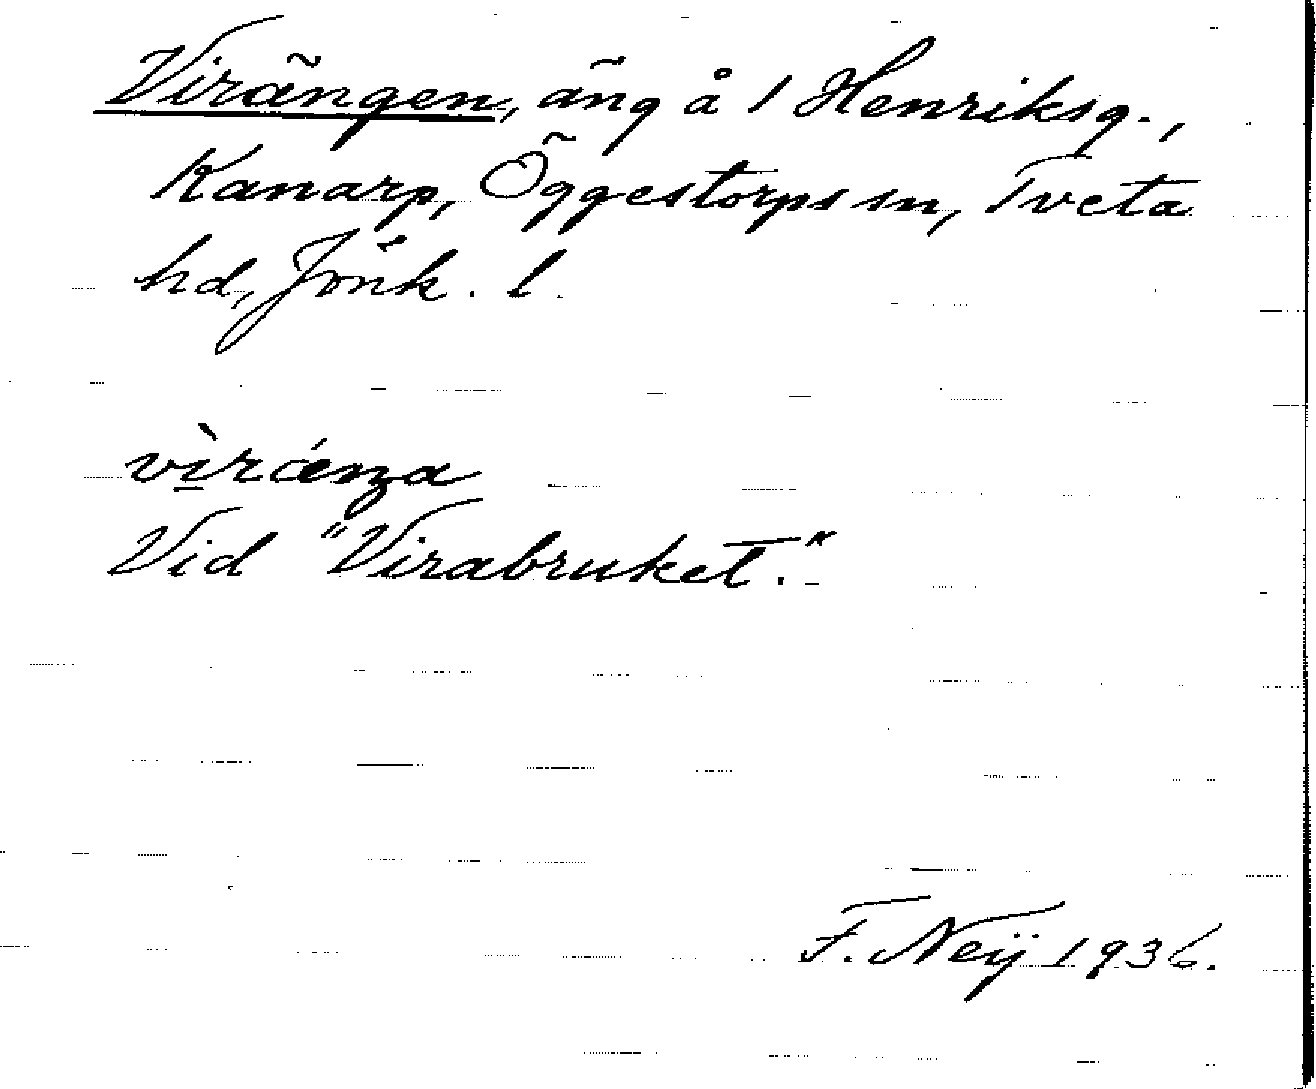 Virängen, äng å 1 Henriksg.,
Kanarp, Öggestorps sn, Tveta
hd, Jönk. l.
vìrǽŋa
Vid "Virabruket."
F. Neij 1936.